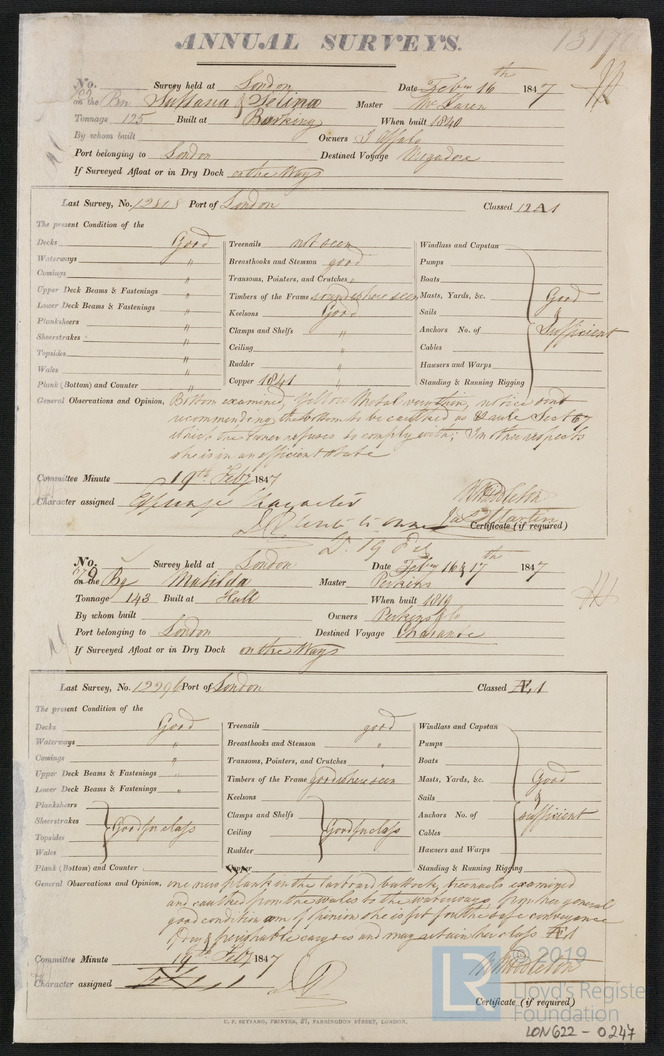 ANNUAL SURVEYS.
No. Survey held at London Date Feby 16th 1847
on the Bn Sultana & Selina Master McLaren
Tonnage 125 Built at Barking When built 1840
By whom built Owners J
Port belonging to London Destined Voyage Mogadore
If Surveyed Afloat or in Dry Dock on the Ways
Last Survey, No. 12818 Port of London Classed 12 A 1
The present Condition of the
Decks Good
Waterways "
Comings "
Upper Deck Beams & Fastenings "
Lower Deck Beams & Fastenings "
Planksheers "
Sheerstrakes "
Topsides "
Wales "
Plank (Bottom) and Counter "
Treenails not seen
Breasthooks and Stemson good
Transoms, Pointers, and Crutches "
Timbers of the Frame sound where seen
Keelsons Good
Clamps and Shelfs "
Ceiling "
Rudder "
Copper 1841
Windlass and Capstan
Pumps
Boats
Masts, Yards, &c.
Sails
Anchors No. of
Cables
Hawsers and Warps
Standing & Running Rigging
Good
&
Sufficient
General Observations and Opinion, Bottom examined, Yellow Metal very thin, notice sent
recommending the bottom to be caulked as Sect 67
which the Owner refuses to comply with; In other respects
she is in an efficient state
Committee Minute 19th Feby 1847
Character assigned Expunge Character
Middleton
Jas Martin
Certificate (if required)
No. Survey held at London Date Feby 16 & 17th 1847
on the Bg Matilda Master Perkins
Tonnage 143 Built at Hull When built 1819
By whom built Owners Perkins & Co
Port belonging to London Destined Voyage Charante
If Surveyed Afloat or in Dry Dock on the Ways
Last Survey, No. 12296 Port of London Classed Æ 1
The present Condition of the
Decks Good
Waterways "
Comings "
Upper Deck Beams & Fastenings "
Lower Deck Beams & Fastenings "
Planksheers
Sheerstrakes
Topsides
Wales
Good for class
Plank (Bottom) and Counter
Treenails good
Breasthooks and Stemson "
Transoms, Pointers, and Crutches "
Timbers of the Frame good where seen
Keelsons
Clamps and Shelfs
Ceiling
Rudder
Good for class
Copper
Windlass and Capstan
Pumps
Boats
Masts, Yards, &c.
Sails
Anchors No. of
Cables
Hawsers and Warps
Standing & Running Rigging
Good
&
sufficient
General Observations and Opinion, one new plank in the larboard buttock, treenails examined
and caulked from the wales to the waterways, from her general
good condition am of opinion she is fit for the safe conveyance
Dry & perishable cargoes and may retain her class Æ 1
Committee Minute 19th Feby 1847
Character assigned
Middleton
Certificate (if required)
C. F. SEYFANG, PRINTER, 57, FARRINGDON STREET, LONDON.
LR
© 2019
Lloyd's Register
Foundation
LON622-0247